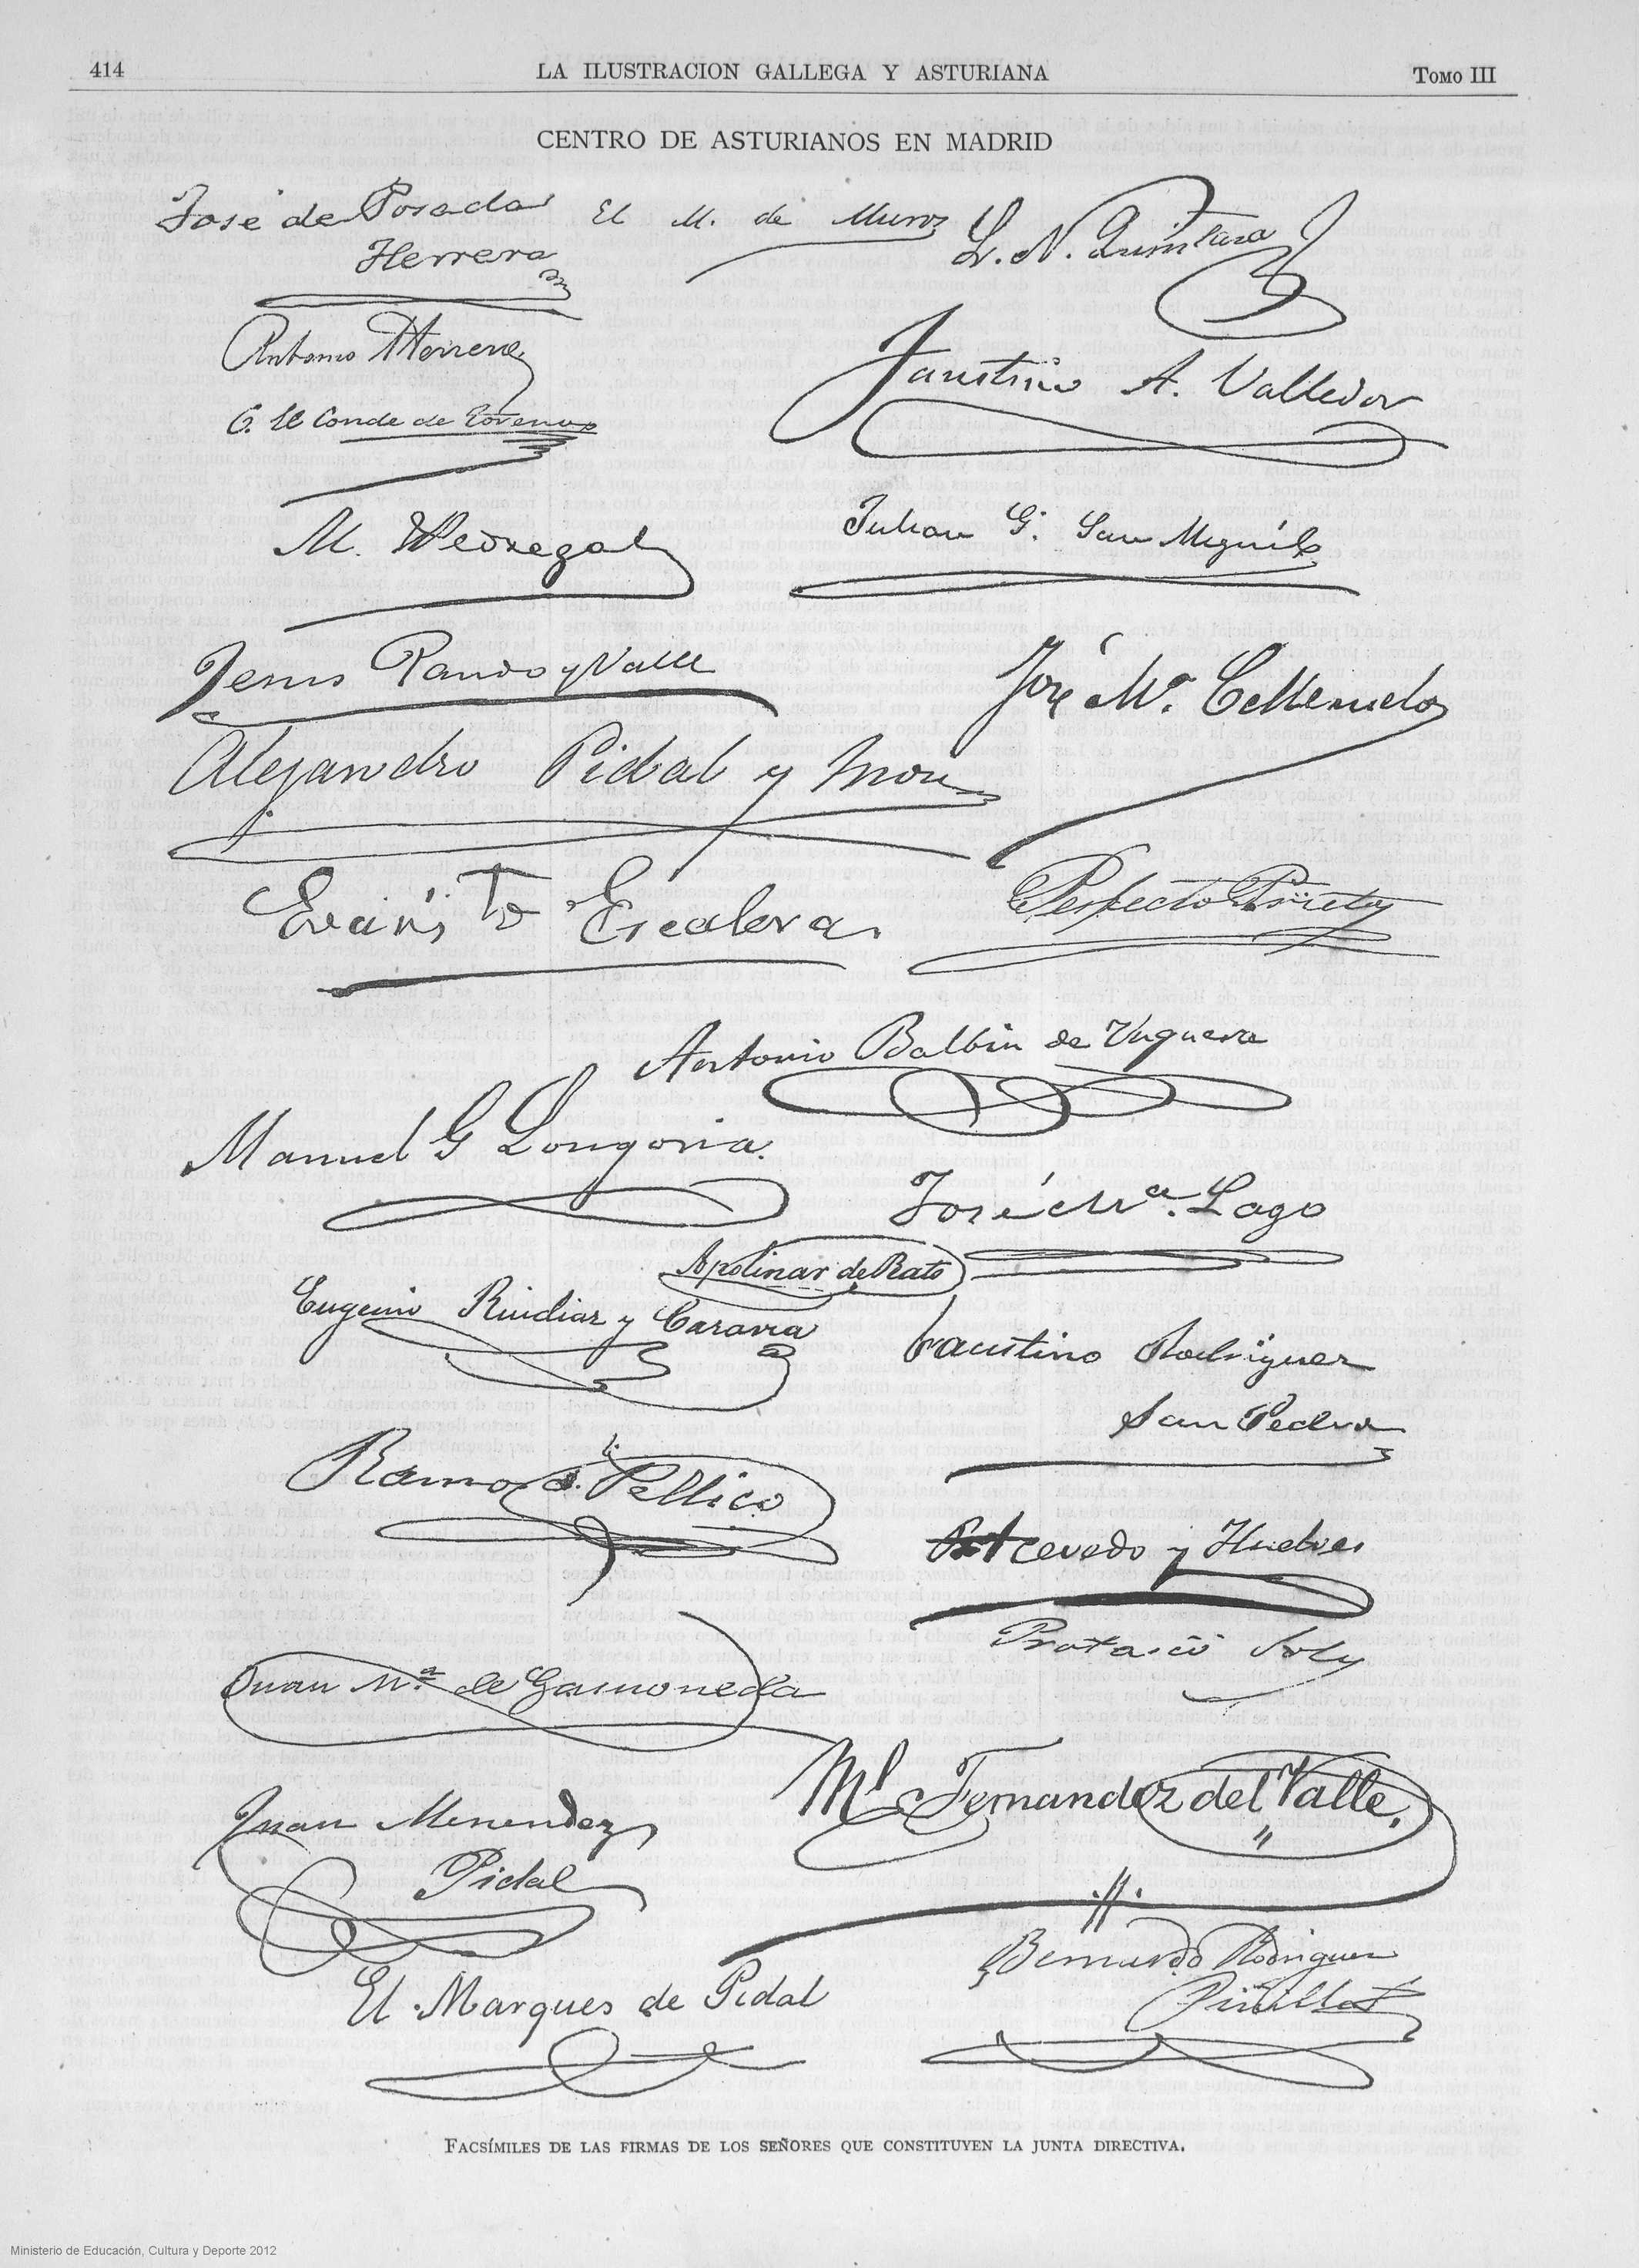 414
LA ILUSTRACION GALLEGA Y ASTURIANA
TOMO III
CENTRO DE ASTURIANOS EN MADRID
José de Posada
Herrera
El M. de Muros
L. N. Quintana
Antonio Herrera
Faustino A. Valledor
C. El Conde de Toreno
M. Pedregal
Julian G. San Miguel
Jesus Pando y Valle
José Mª. Celleruelo
Alejandro Pidal y Mon
Evaristo Escalera
Perfecto Prieto
Antonio Balbin de Unquera
Manuel G Longoria.
José Mª. Lago
Apolinar de Rato
Eugenio Ruidiaz y Caravia
Faustino Rodriguez
San Pedro
Ramon Pellico
Acevedo y Huelves
Protasio Soly
Juan Mª. de Gamoneda
Ml. Fernandez del Valle.
Juan Menendez
Pidal
Bernardo Rodriguez
El Marques de Pidal
FACSÍMILES DE LAS FIRMAS DE LOS SEÑORES QUE CONSTITUYEN LA JUNTA DIRECTIVA.
Ministerio de Educación, Cultura y Deporte 2012